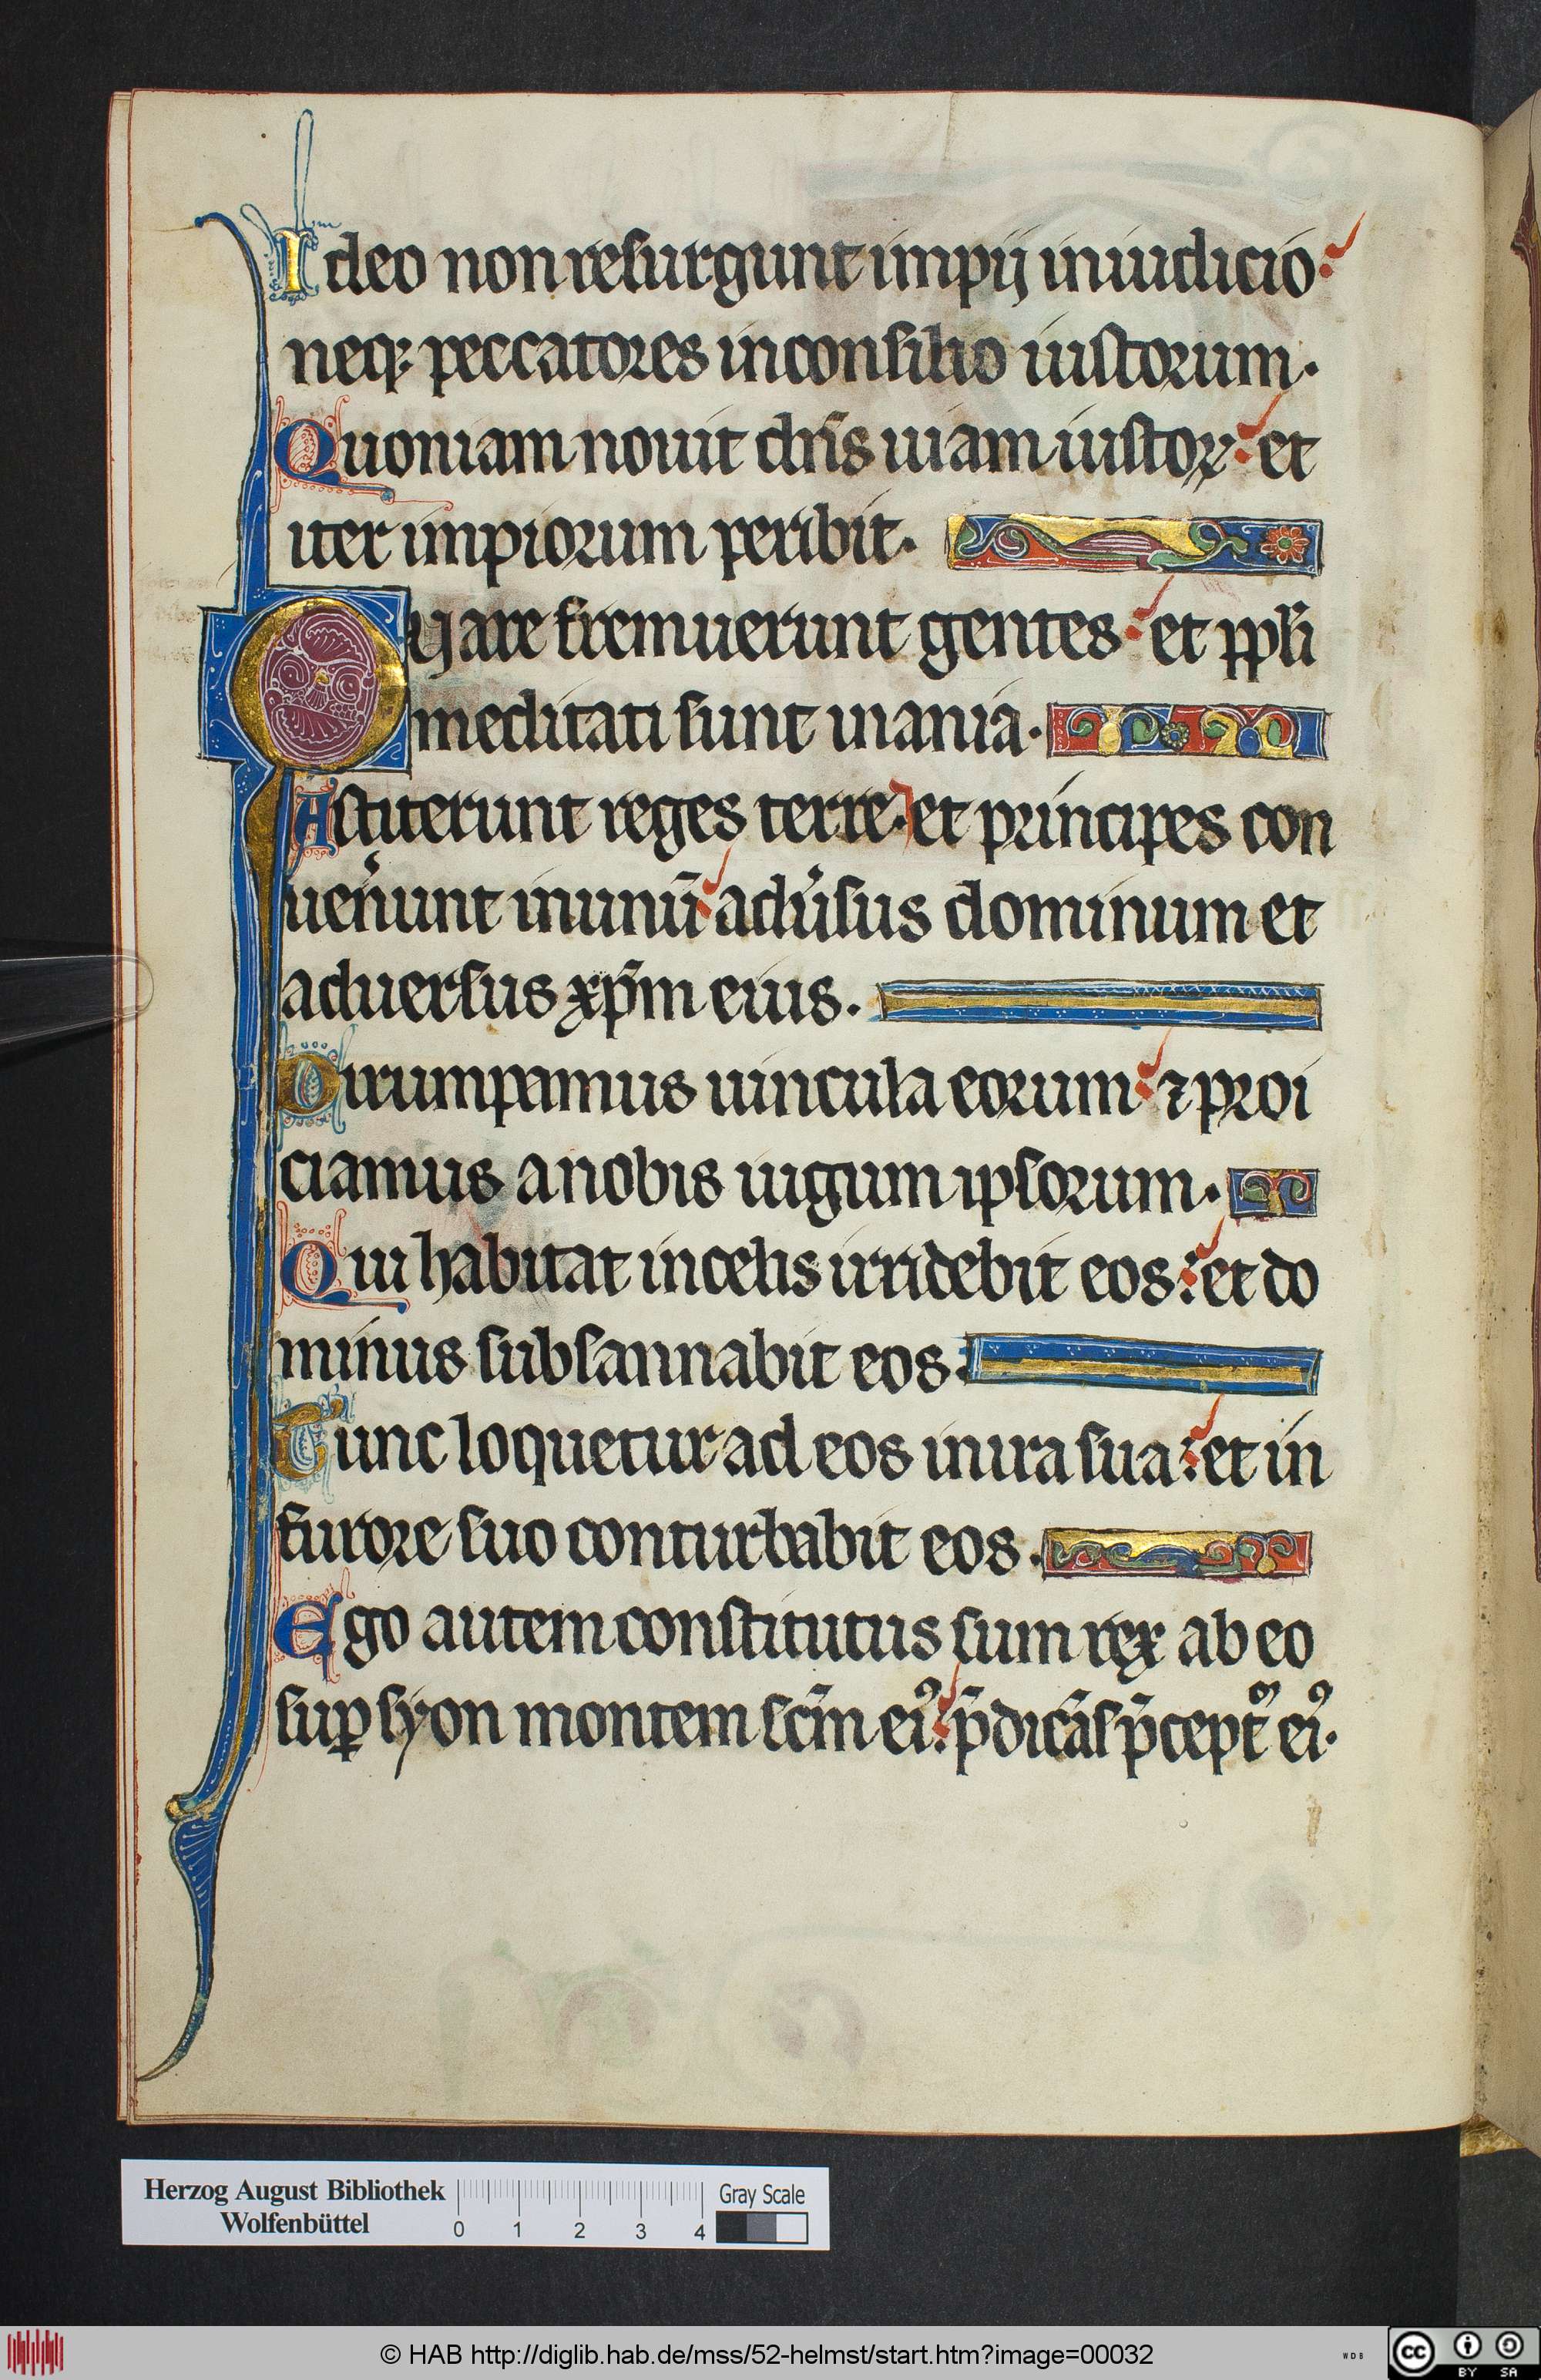 Ideo non resurgunt impij in iudicio:
neq; peccatores in consilio iustorum.
Quoniam nouit dn̄s uiam iustoꝝ: et
iter impiorum peribit.
Quare fremuerunt gentes: et ppl̄i
meditati sunt inania.
Astiterunt reges terre. et principes con
uen̾unt in unū: adu̾sus dominum et
aduersus xp̄m eius.
Dirumpamus uincula eorum: ⁊ proi
ciamus a nobis iugum ipsorum.
Qui habitat in celis irridebit eos: et do
minus subsannabit eos:
Tunc loquetur ad eos in ira sua: et in
furore suo conturbabit eos.
Ego autem constitutus sum rex ab eo
suꝑ syon montem sc̄m eiꝰ: p̄dicās p̄ceptͫ eiꝰ.
Herzog August Bibliothek
Wolfenbüttel
0 1 2 3 4
Gray Scale
© HAB http://diglib.hab.de/mss/52-helmst/start.htm?image=00032
WDB
cc BY SA